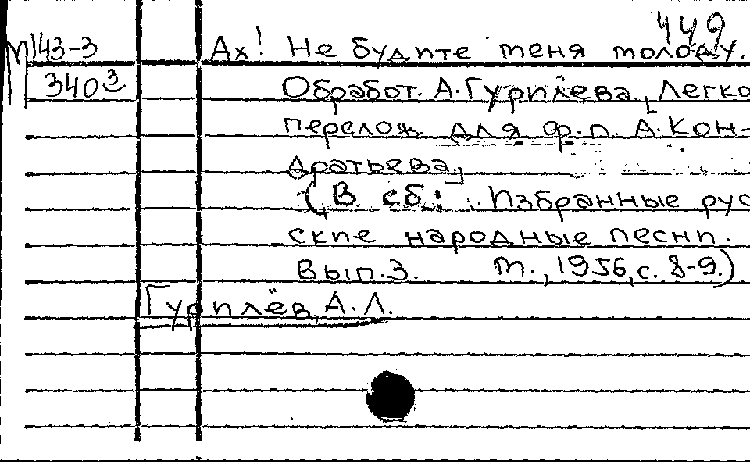 449
М 143-3 Ах! Не будите меня молоду.
340³ Обработ. А. Гурилёва, Легко
перелож. для ф.п. А. Кон-
дратьева,
(В сб.: Избранные рус
ские народные песни.
Вып.3. М., 1956, с. 8-9.)
Гурилёв, А. Л.